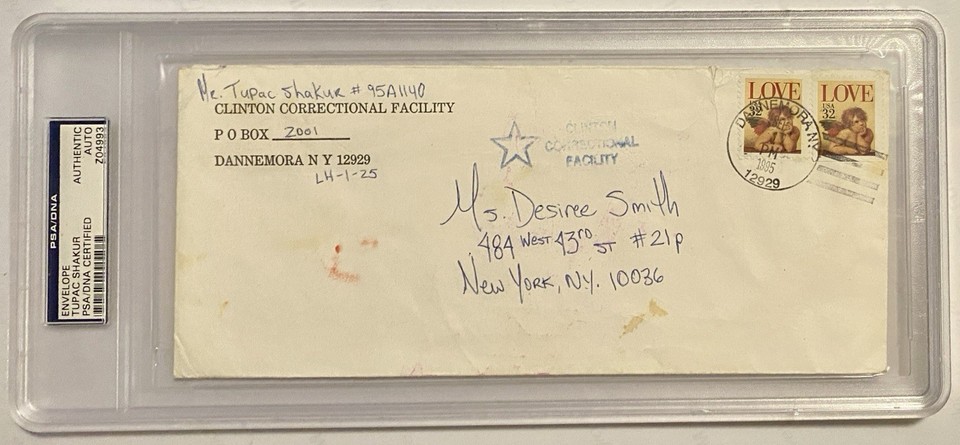 PSA/DNA
ENVELOPE
TUPAC SHAKUR
PSA/DNA CERTIFIED
AUTHENTIC
AUTO
Z04993
Mr. Tupac Shakur # 95A1140
CLINTON CORRECTIONAL FACILITY
P O BOX 2001
DANNEMORA N Y 12929
LH-1-25
CLINTON
CORRECTIONAL
FACILITY
LOVE
32
LOVE
USA
32
DANNEMORA NY
PM
1995
12929
Ms. Desiree Smith
484 West 43rd ST #21p
New York, N.Y. 10036